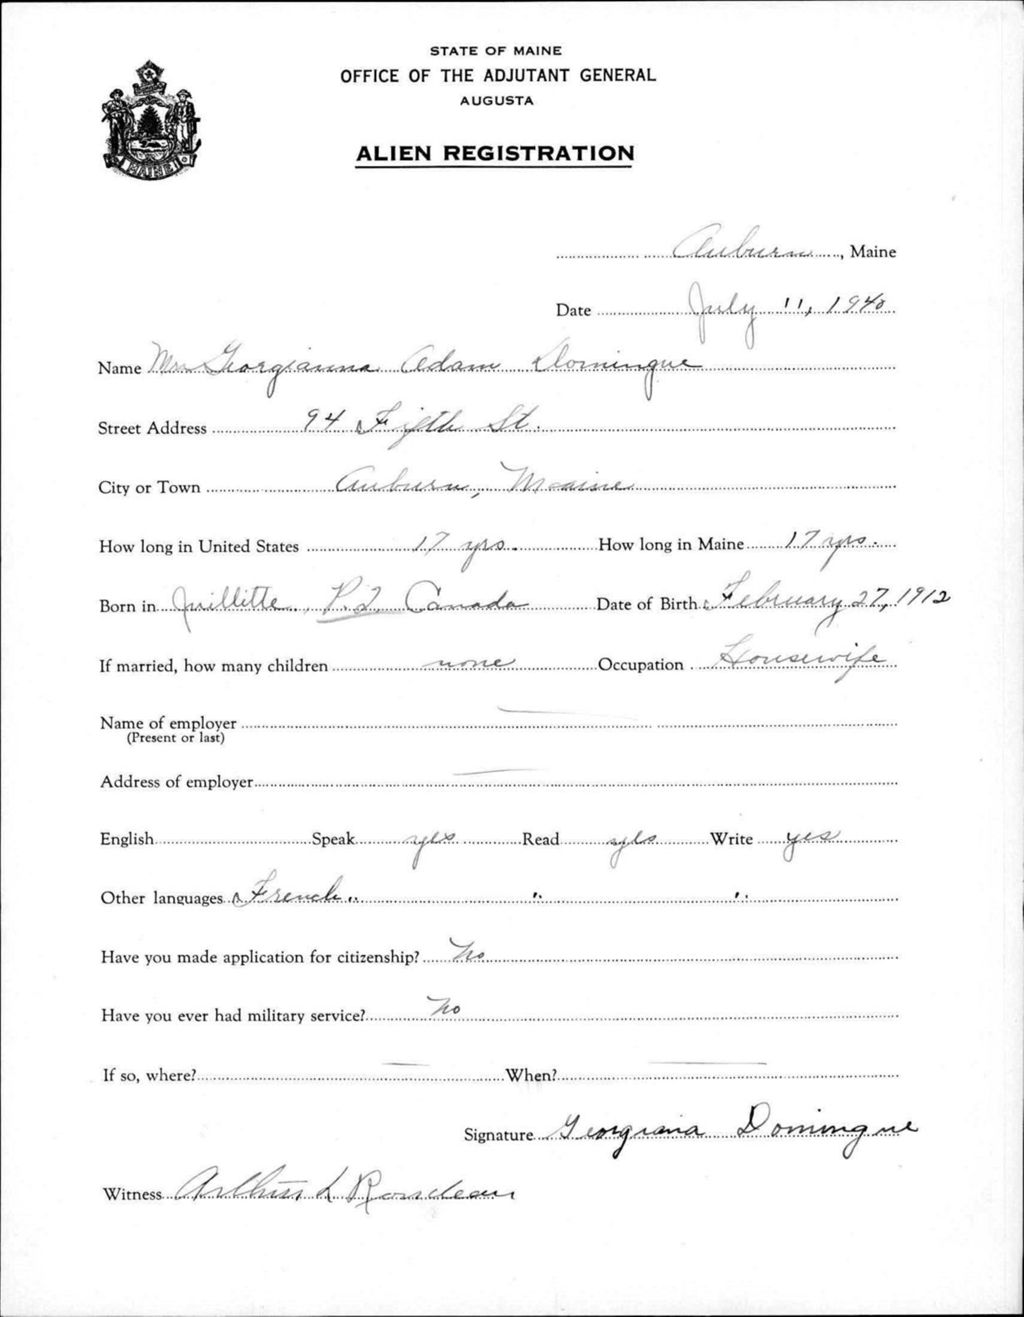 STATE OF MAINE
OFFICE OF THE ADJUTANT GENERAL
AUGUSTA
ALIEN REGISTRATION
MAINE
Auburn, Maine
Date July 11, 1940
Name Mrs Georgianna Adam Domingue
Street Address 94 Fifth St.
City or Town Auburn, Maine
How long in United States 17 yrs. How long in Maine 17 yrs.
Born in Canada Date of Birth February 27, 1912
If married, how many children none Occupation Housewife
Name of employer
(Present or last)
Address of employer
English Speak yes Read yes Write yes
Other languages French " " "
Have you made application for citizenship? No
Have you ever had military service? No
If so, where? When?
Signature Georgiana Domingue
Witness L